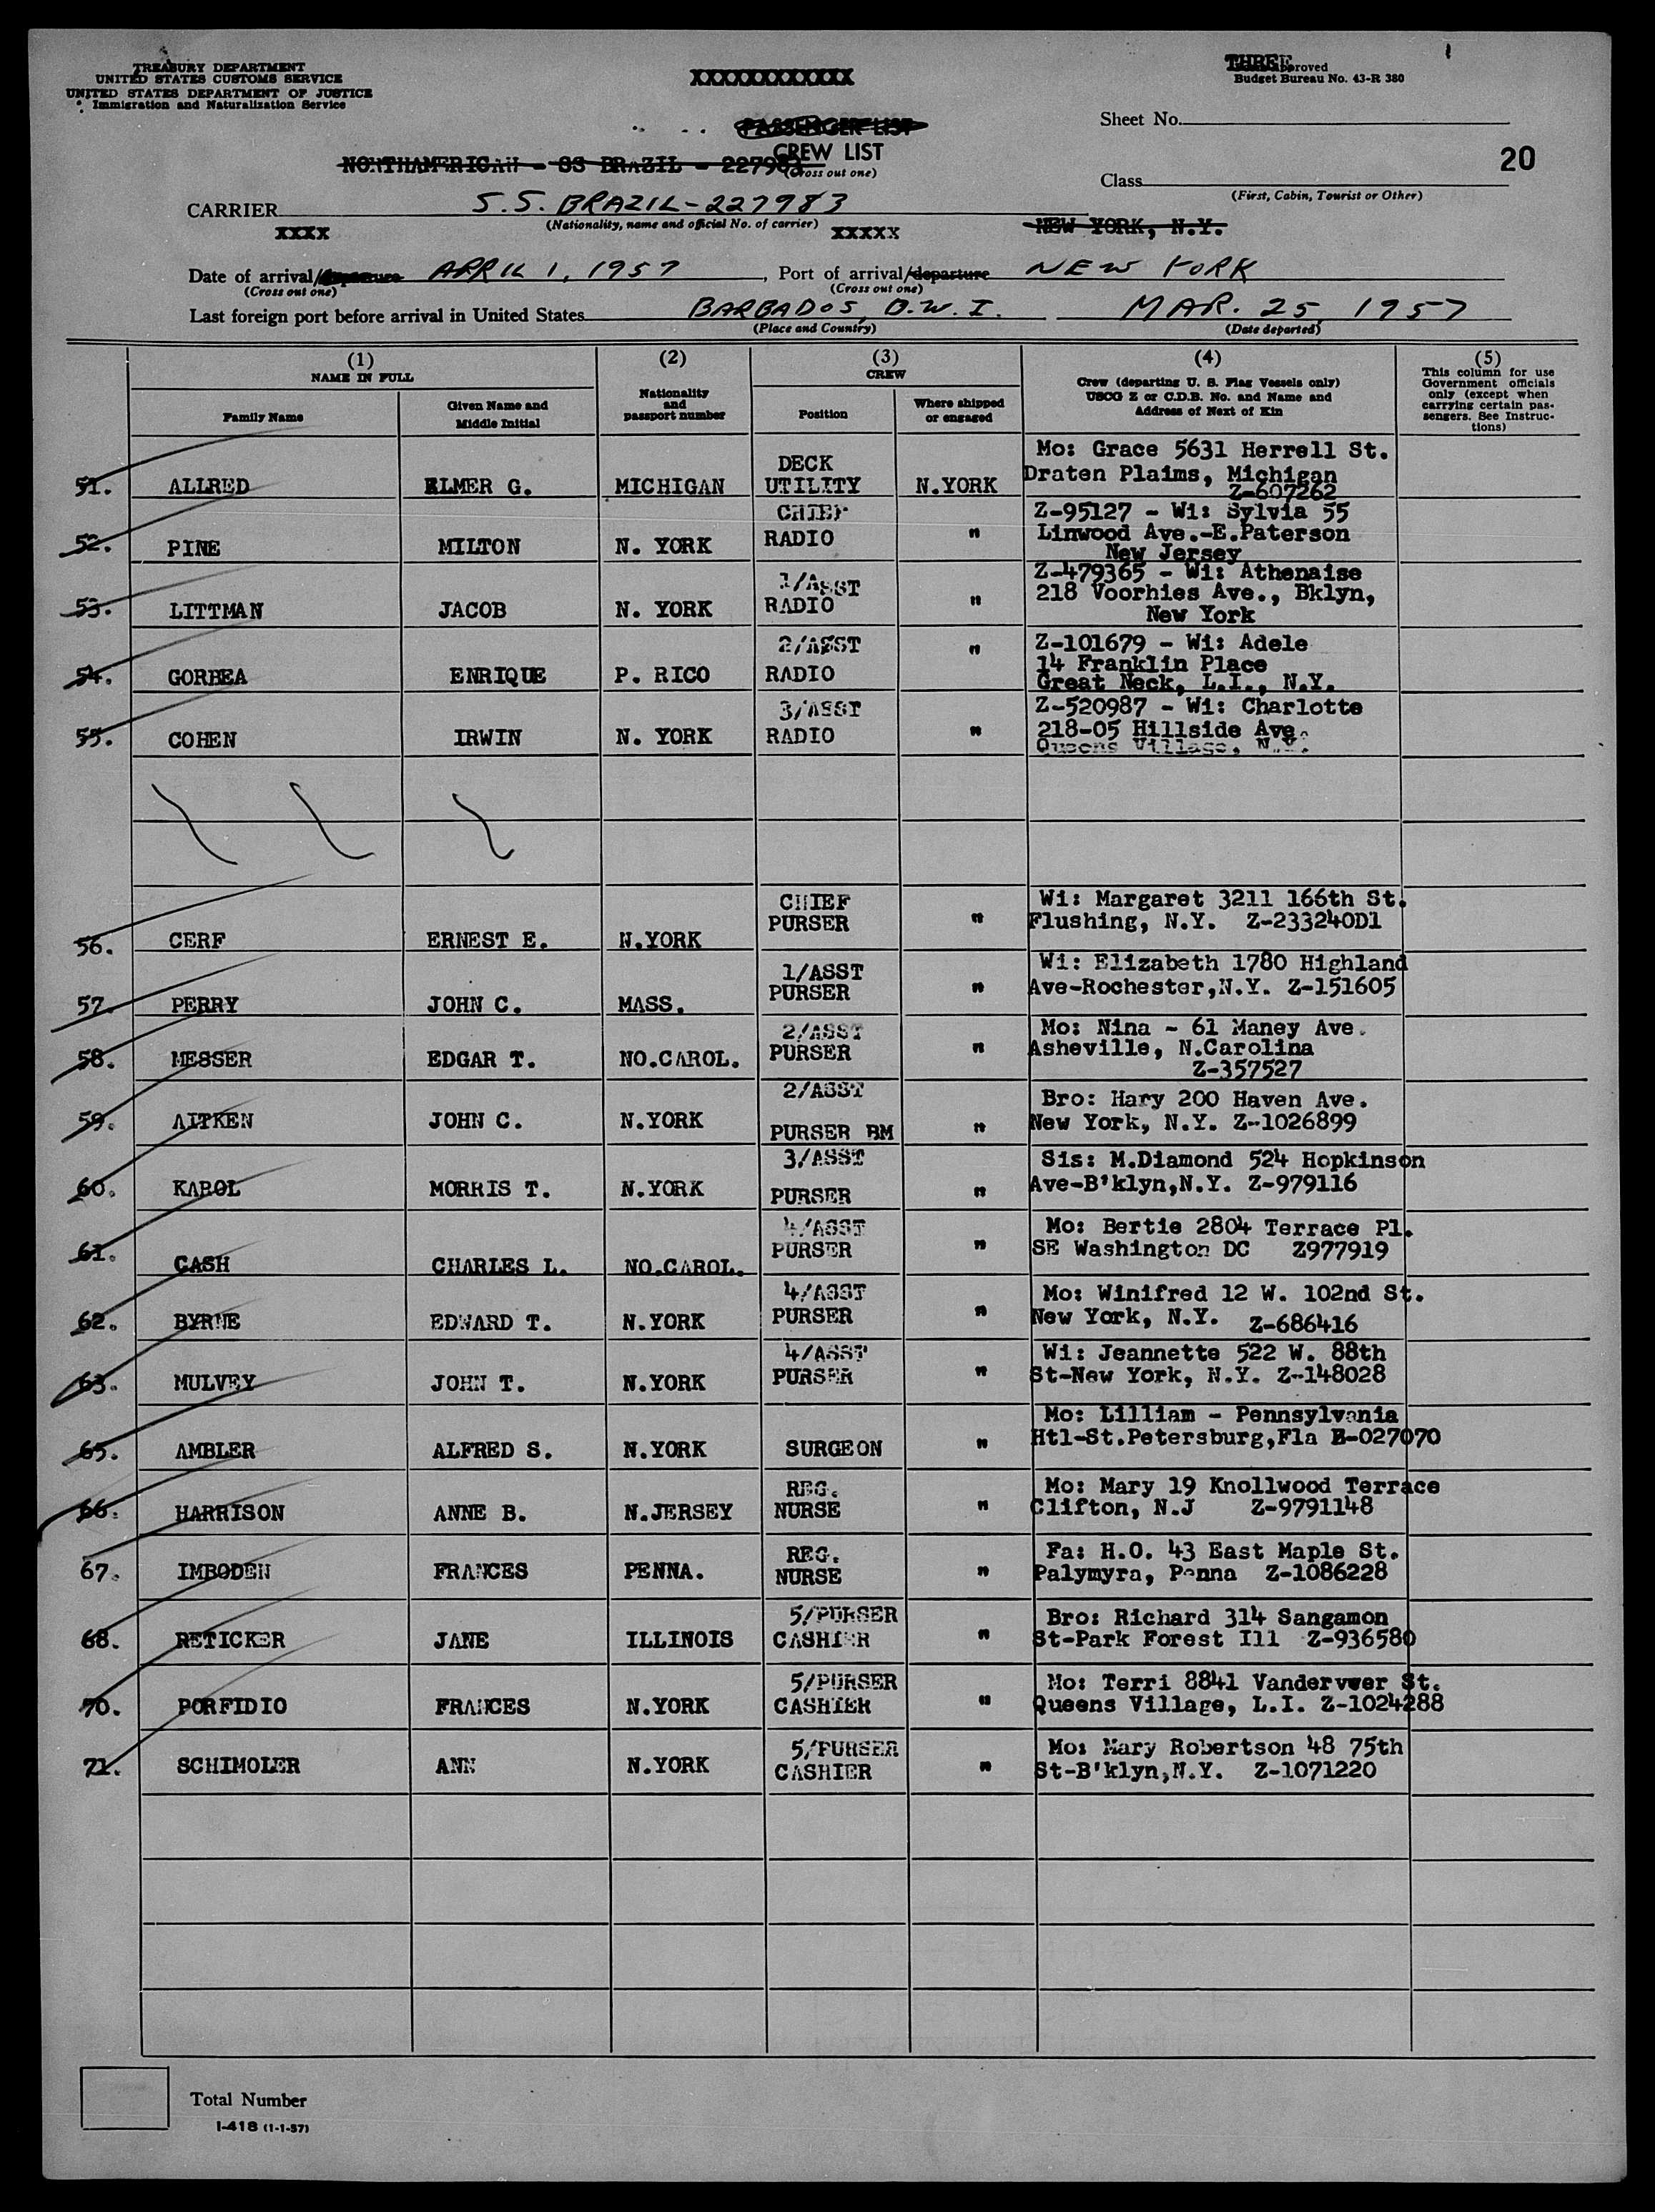 TREASURY DEPARTMENT
UNITED STATES CUSTOMS SERVICE
UNITED STATES DEPARTMENT OF JUSTICE
Immigration and Naturalization Service
XXXXXXXXXXXX
THREE
Approved
Budget Bureau No. 43-R 380
PASSENGER LIST
CREW LIST
(Cross out one)
NORTHAMERICAN - SS BRAZIL - 227983
Sheet No.
20
Class
(First, Cabin, Tourist or Other)
CARRIER S.S. BRAZIL-227983
(Nationality, name and official No. of carrier)
XXXX XXXXX
NEW YORK, N.Y.
Date of arrival/departure APRIL 1, 1957, Port of arrival/departure NEW YORK
(Cross out one) (Cross out one)
Last foreign port before arrival in United States BARBADOS, B.W.I. MAR. 25, 1957
(Place and Country) (Date departed)
(1) (2) (3) (4) (5)
NAME IN FULL
Family Name
Given Name and
Middle Initial
Nationality
and
passport number
CREW
Position
Where shipped
or engaged
Crew (departing U. S. Flag Vessels only)
USCG Z or C.D.B. No. and Name and
Address of Next of Kin
This column for use
Government officials
only (except when
carrying certain pas-
sengers. See Instruc-
tions)
51. ALLRED ELMER G. MICHIGAN DECK UTILITY N.YORK Mo: Grace 5631 Herrell St.
Draten Plaims, Michigan
Z-607262
52. PINE MILTON N. YORK CHIEF RADIO " Z-95127 - Wi: Sylvia 55
Linwood Ave.-E.Paterson
New Jersey
53. LITTMAN JACOB N. YORK 1/ASST RADIO " Z-479365 - Wi: Athenaise
218 Voorhies Ave., Bklyn,
New York
54. GORBEA ENRIQUE P. RICO 2/ASST RADIO " Z-101679 - Wi: Adele
14 Franklin Place
Great Neck, L.I., N.Y.
55. COHEN IRWIN N. YORK 3/ASST RADIO " Z-520987 - Wi: Charlotte
218-05 Hillside Ave.
Queens Village, N.Y.
56. CERF ERNEST E. N.YORK CHIEF PURSER " Wi: Margaret 3211 166th St.
Flushing, N.Y. Z-233240D1
57. PERRY JOHN C. MASS. 1/ASST PURSER " Wi: Elizabeth 1780 Highland
Ave-Rochester,N.Y. Z-151605
58. MESSER EDGAR T. NO.CAROL. 2/ASST PURSER " Mo: Nina - 61 Maney Ave.
Asheville, N.Carolina
Z-357527
59. AITKEN JOHN C. N.YORK 2/ASST PURSER BM " Bro: Hary 200 Haven Ave.
New York, N.Y. Z-1026899
60. KAROL MORRIS T. N.YORK 3/ASST PURSER " Sis: M.Diamond 524 Hopkinson
Ave-B'klyn,N.Y. Z-979116
61. CASH CHARLES L. NO.CAROL. 4/ASST PURSER " Mo: Bertie 2804 Terrace Pl.
SE Washington DC Z977919
62. BYRNE EDWARD T. N.YORK 4/ASST PURSER " Mo: Winifred 12 W. 102nd St.
New York, N.Y. Z-686416
63. MULVEY JOHN T. N.YORK 4/ASST PURSER " Wi: Jeannette 522 W. 88th
St-New York, N.Y. Z-148028
65. AMBLER ALFRED S. N.YORK SURGEON " Mo: Lilliam - Pennsylvania
Htl-St.Petersburg,Fla B-027070
66. HARRISON ANNE B. N.JERSEY REG. NURSE " Mo: Mary 19 Knollwood Terrace
Clifton, N.J Z-9791148
67. IMBODEN FRANCES PENNA. REG. NURSE " Fa: H.O. 43 East Maple St.
Palymyra, Penna Z-1086228
68. RETICKER JANE ILLINOIS 5/PURSER CASHIER " Bro: Richard 314 Sangamon
St-Park Forest Ill Z-936580
70. PORFIDIO FRANCES N.YORK 5/PURSER CASHIER " Mo: Terri 8841 Vanderveer St.
Queens Village, L.I. Z-1024288
71. SCHIMOLER ANN N.YORK 5/PURSER CASHIER " Mo: Mary Robertson 48 75th
St-B'klyn,N.Y. Z-1071220
Total Number
I-418 (1-1-57)